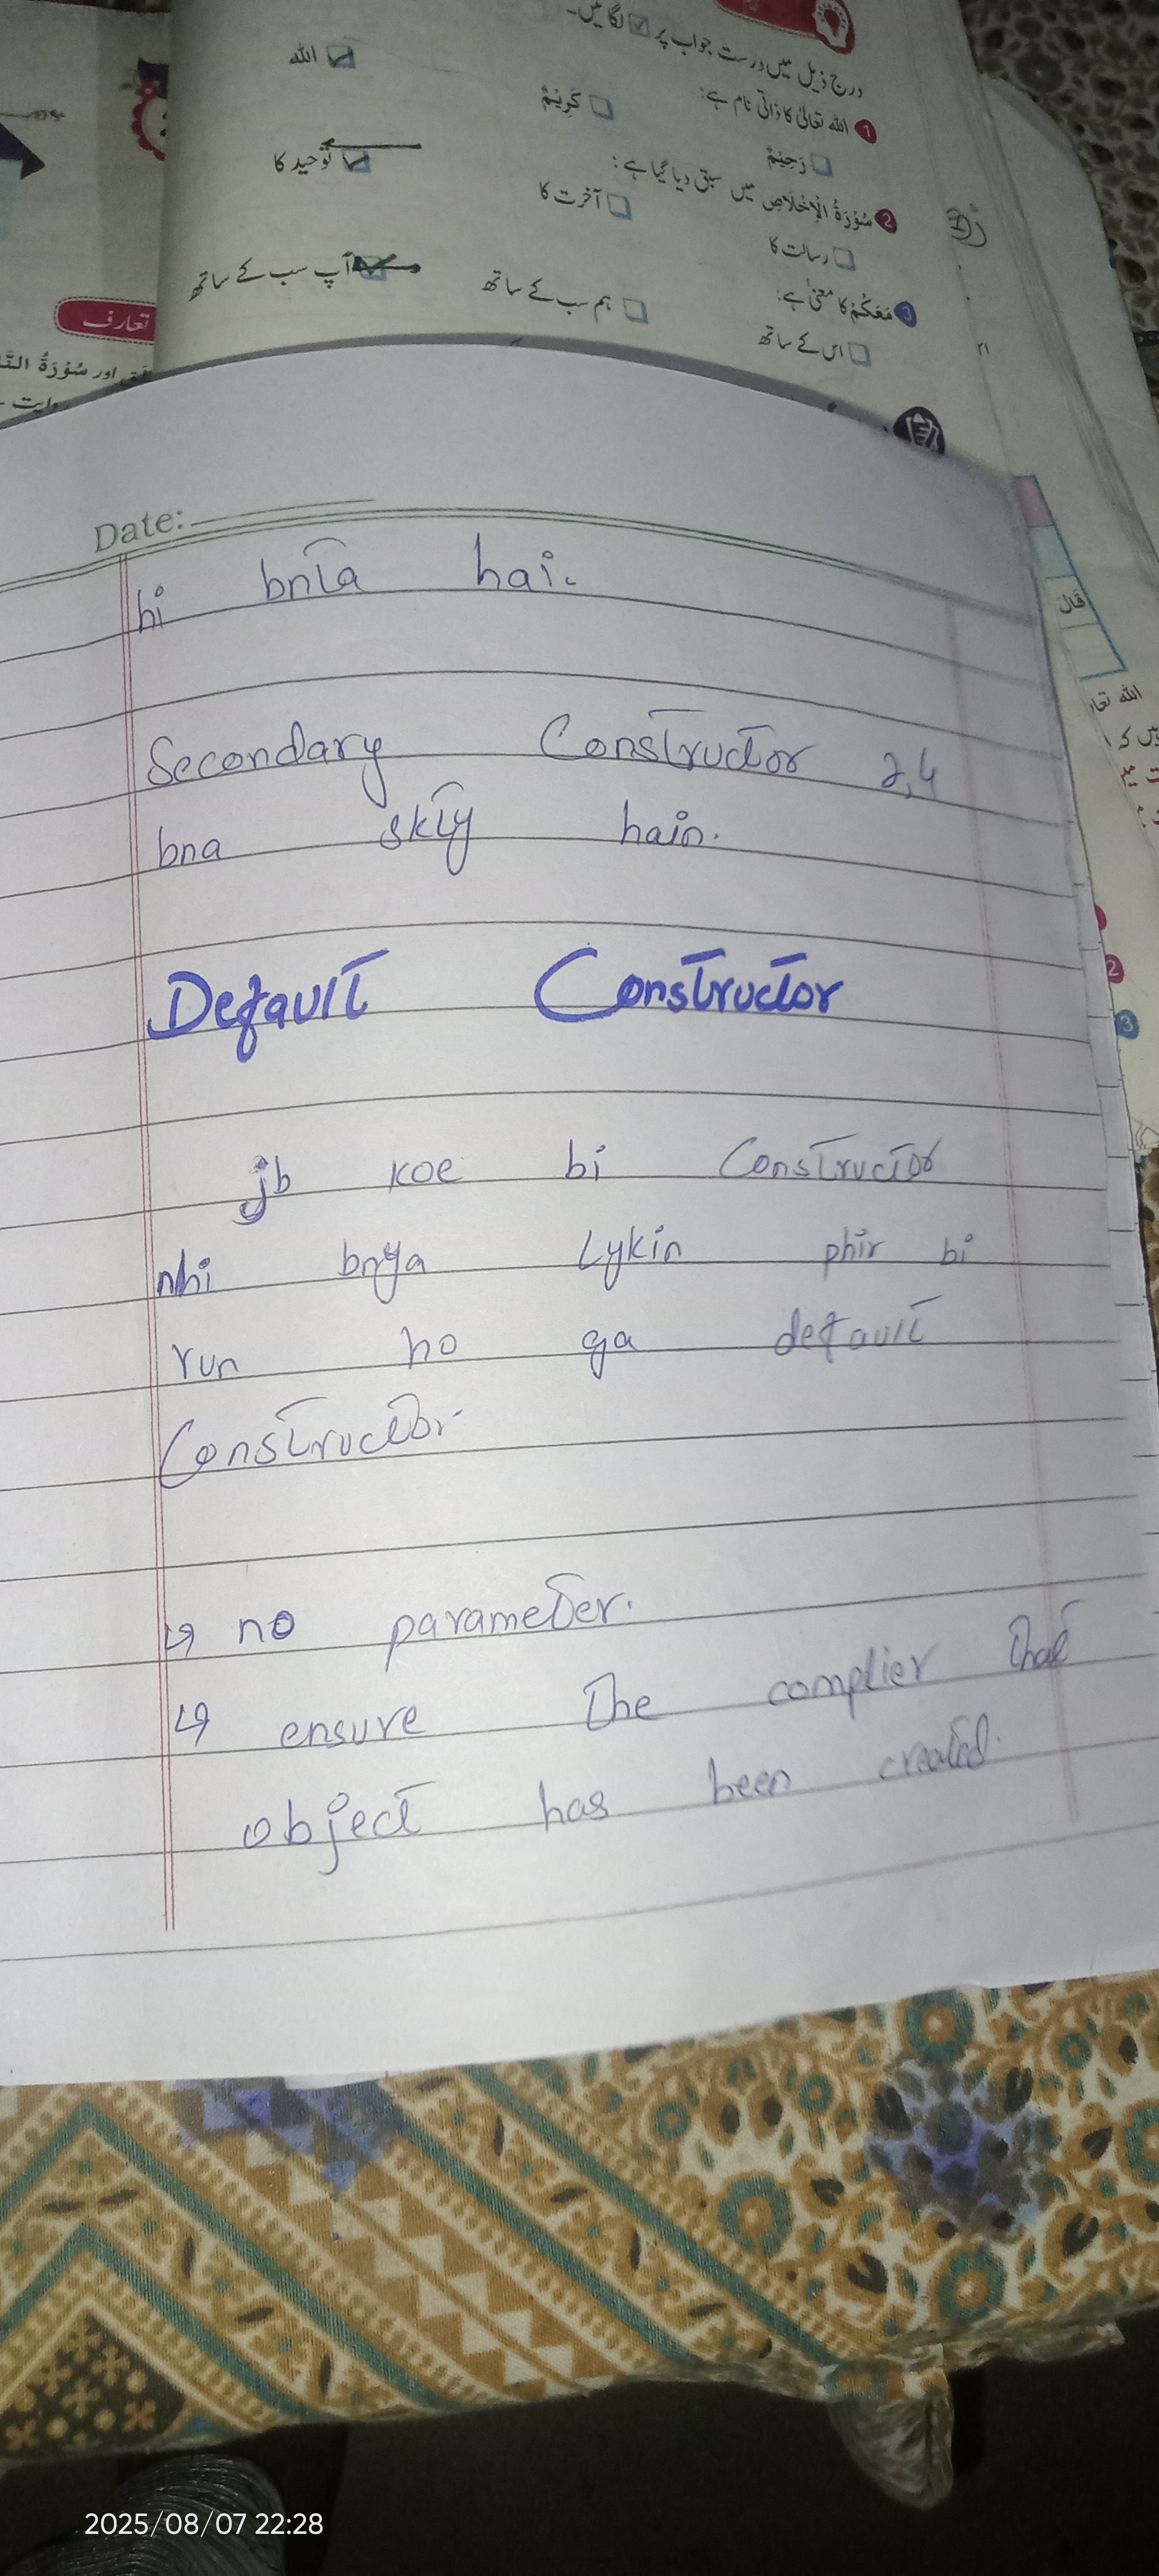 درج ذیل میں درست جواب پر ✓ لگائیں۔
1 اللہ تعالیٰ کا ذاتی نام ہے:
رَحِيْمٌ كَرِيْمٌ الله
2 سُوْرَةُ الْاِخْلَاصِ میں سبق دیا گیا ہے:
رسالت کا آخرت کا توحید کا
3 مَعَكُمْ کا معنیٰ ہے:
اس کے ساتھ ہم سب کے ساتھ آپ سب کے ساتھ
تعارف
اور سُوْرَةُ
قَالَ
الله
2
3
Date:
hi bnta hai.
Secondary Constructor 2,4
bna skty hain.
Default Constructor
jb koe bi Constructor
nhi bnya Lykin phir bi
run ho ga default
Constructor.
↳ no parameter.
↳ ensure the complier that
object has been created.
2025/08/07 22:28